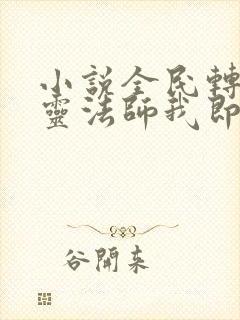 小說全民轉
靈法師我即
谷開來